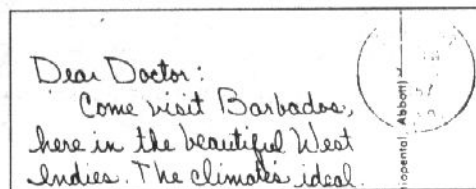 Dear Doctor:
Come visit Barbados,
here in the beautiful West
Indies. The climate's ideal
iopental, Abbott)